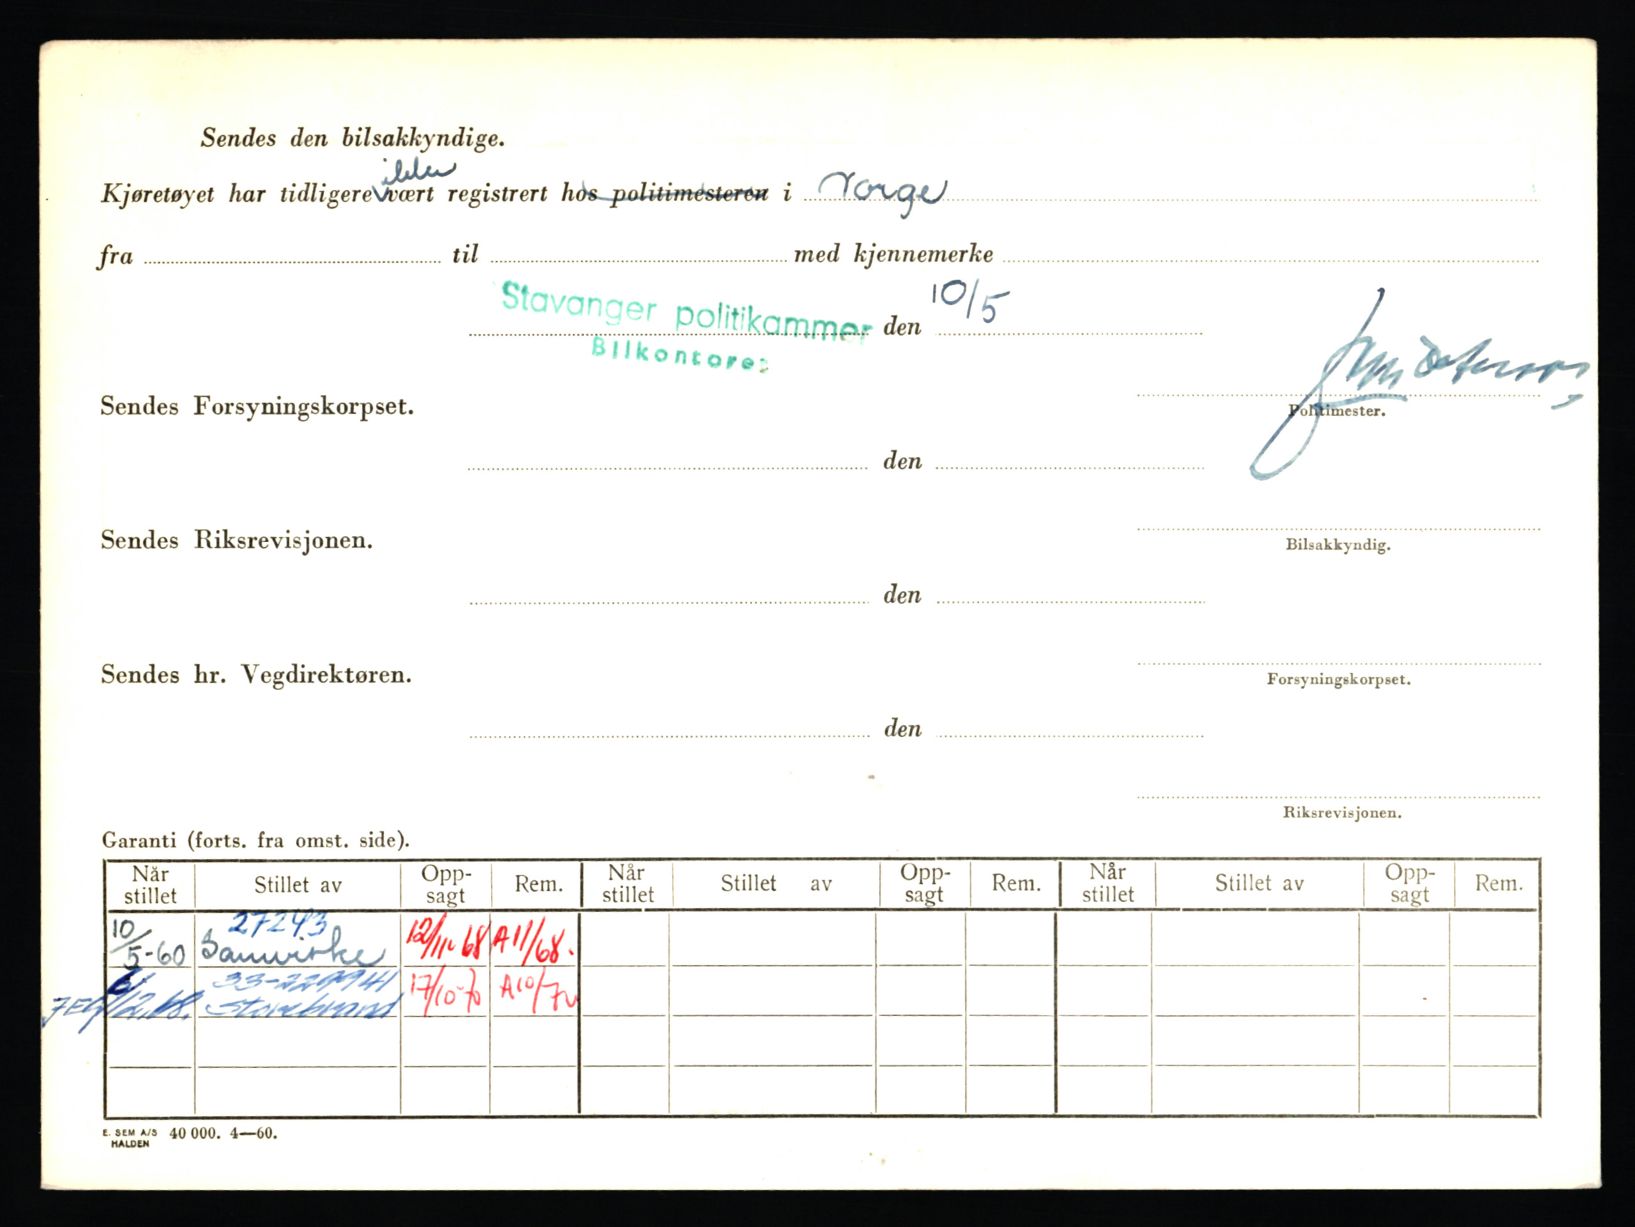 Sendes den bilsakkyndige.
ikke
Kjøretøyet har tidligere vært registrert hos politimesteren i Norge
fra til med kjennemerke
Stavanger politikammer den 10/5
Bilkontoret
Politimester.
Sendes Forsyningskorpset.
den
Bilsakkyndig.
Sendes Riksrevisjonen.
den
Forsyningskorpset.
Sendes hr. Vegdirektøren.
den
Riksrevisjonen.
Garanti (forts. fra omst. side).
Når stillet Stillet av Opp-sagt Rem. Når stillet Stillet av Opp-sagt Rem. Når stillet Stillet av Opp-sagt Rem.
27243
10/5-60 Samvirke 12/11-68 A11/68.
33-229941
Storebrand 17/10-70 A10/70
E. SEM A/S HALDEN 40 000. 4—60.